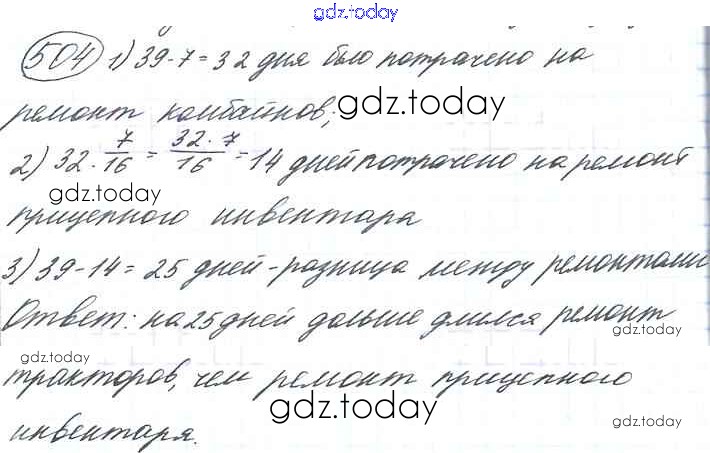 gdz.today
504 1) 39-7=32 дня было потрачено на
ремонт комбайнов;
gdz.today
2) 32·7/16=32·7/16=14 дней потрачено на ремонт
gdz.today
прицепного инвентаря
3) 39-14=25 дней-разница между ремонтами
Ответ: на 25 дней дольше длился ремонт
gdz.today
gdz.today
тракторов, чем ремонт прицепного
gdz.today
gdz.today
инвентаря.